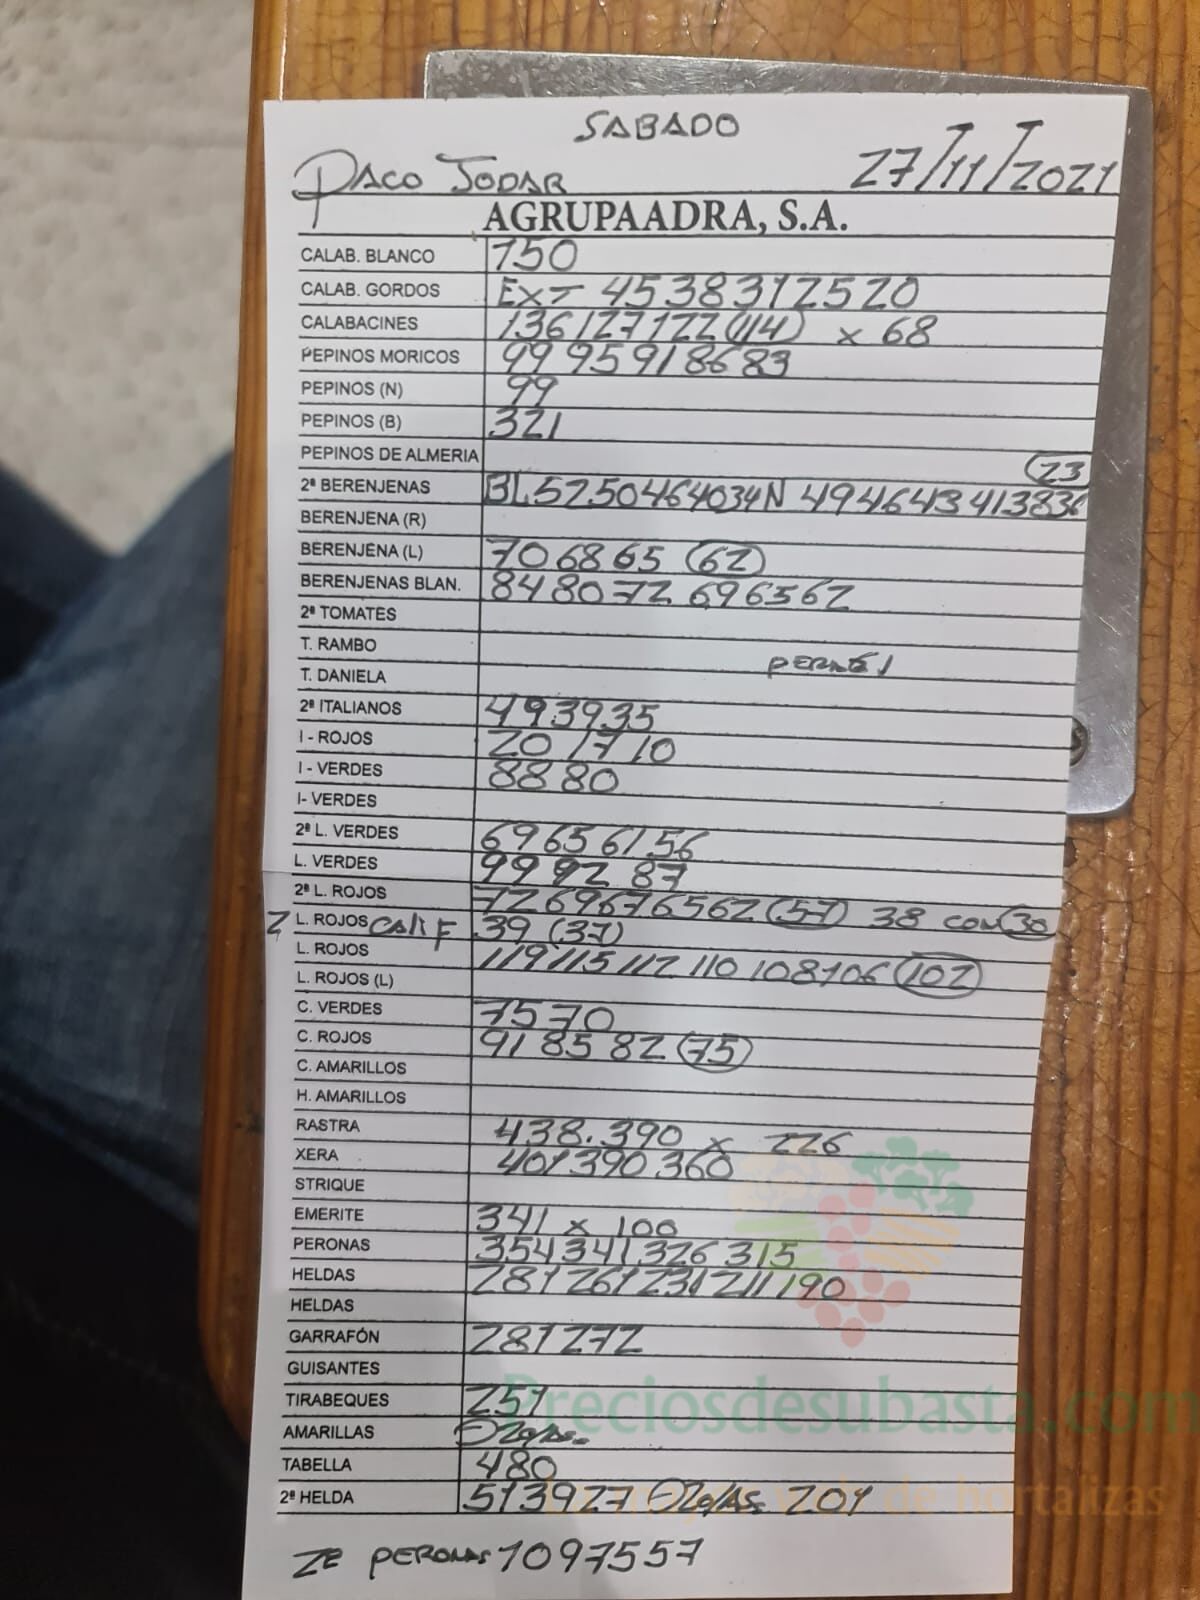 SABADO
PACO JODAR 27/11/2021
AGRUPAADRA, S.A.
CALAB. BLANCO 150
CALAB. GORDOS EXT 4538312520
CALABACINES 136127122(114) x 68
PEPINOS MORICOS 9995918683
PEPINOS (N) 99
PEPINOS (B) 321
PEPINOS DE ALMERIA
23
2ª BERENJENAS BL5250464034N 494643413836
BERENJENA (R)
BERENJENA (L) 706865 (62)
BERENJENAS BLAN. 848072 696562
2ª TOMATES
T. RAMBO
T. DANIELA
2ª ITALIANOS 493935
I - ROJOS 201710
I - VERDES 8880
I- VERDES
2ª L. VERDES 69656156
L. VERDES 999287
2ª L. ROJOS 7269676562(57) 38 CON(30
2 L. ROJOS CALIF 39 (37)
L. ROJOS 119115112 110 108106 (102)
L. ROJOS (L)
C. VERDES 7570
C. ROJOS 918582 (75)
C. AMARILLOS
H. AMARILLOS
RASTRA 438.390 x 226
XERA 401390360
STRIQUE
EMERITE 341 x 100
PERONAS 354341326315
HELDAS 281261231211190
HELDAS
GARRAFÓN 281272
GUISANTES
TIRABEQUES 251
Preciosdesubasta.com
AMARILLAS
TABELLA 480
2ª HELDA 513927 201
de hortalizas
2ª PERONAS 1097557